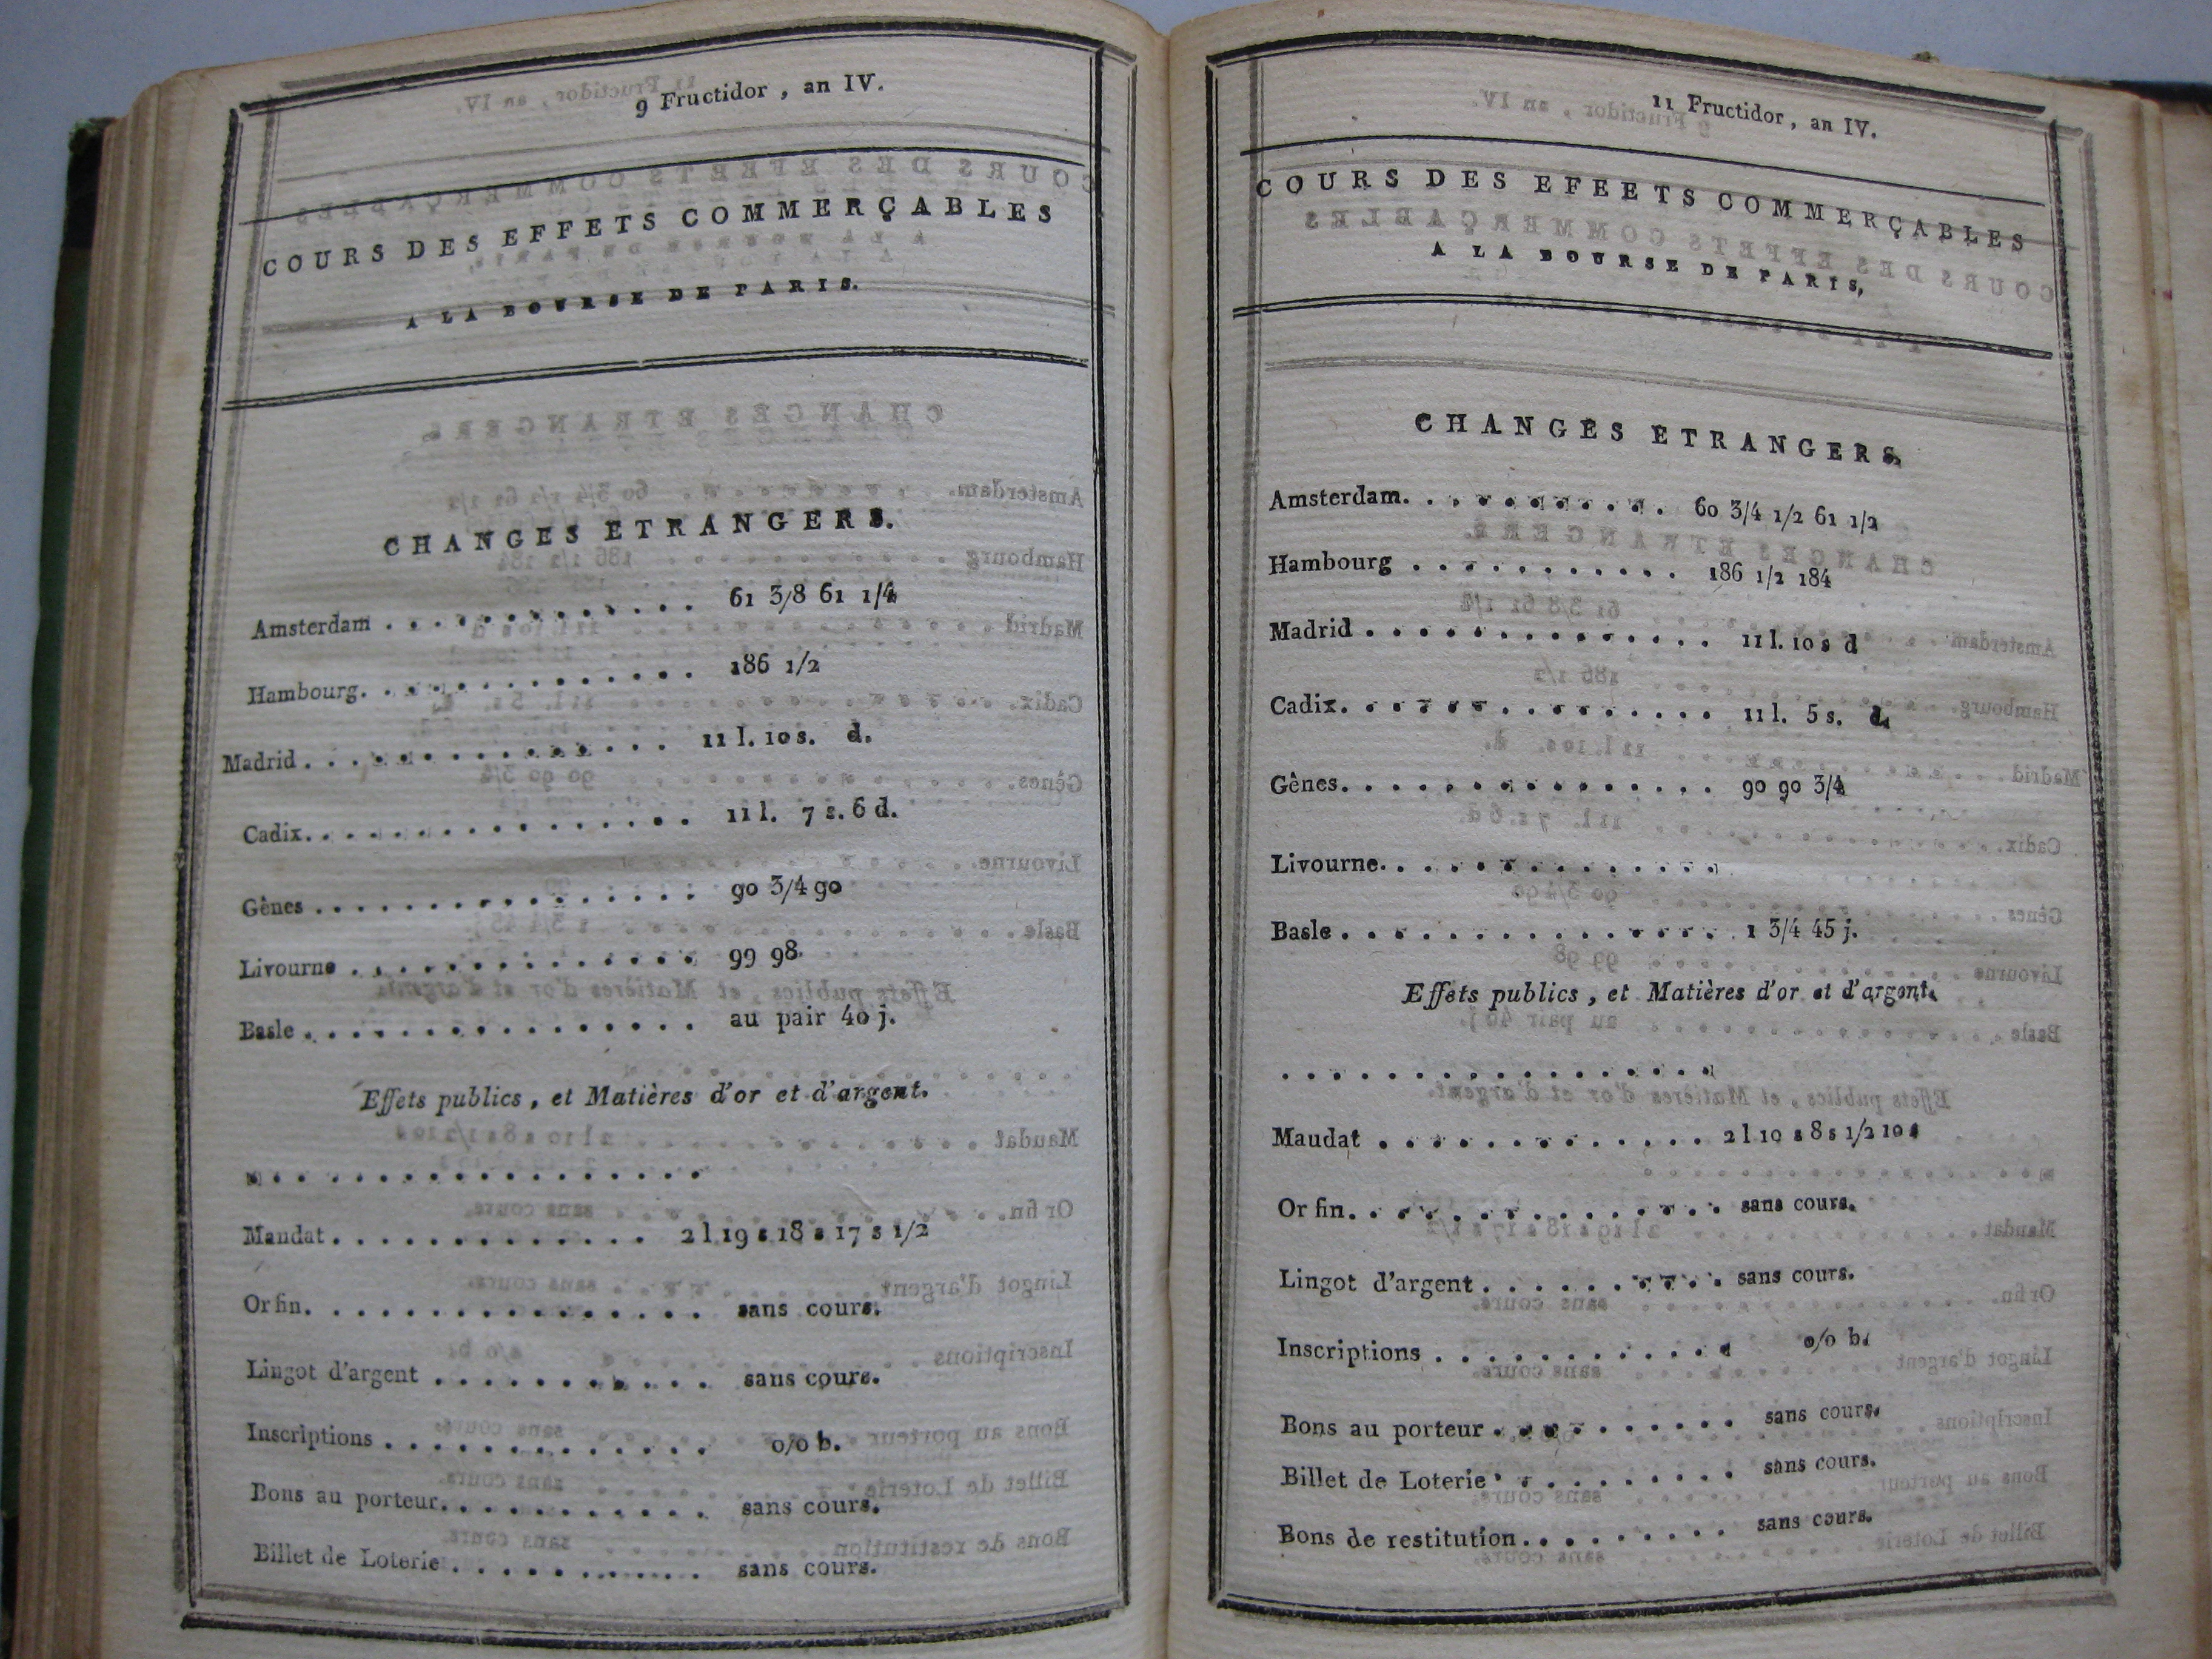 9 Fructidor , an IV.
COURS DES EFFETS COMMERÇABLES
A LA BOURSE DE PARIS.
CHANGES ETRANGERS.
Amsterdam . . . . . . . . . . . . . . 61 3/8 61 1/4
Hambourg. . . . . . . . . . . . . . . 186 1/2
Madrid . . . . . . . . . . . . . . 11 l. 10 s. d.
Cadix. . . . . . . . . . . . . . . . . 11 l. 7 s. 6 d.
Gênes . . . . . . . . . . . . . . . . 90 3/4 90
Livourne . . . . . . . . . . . . . . . 99 98.
Basle . . . . . . . . . . . . . . . . au pair 40 j.
Effets publics , et Matières d'or et d'argent.
. . . . . . . . . . . . . . . . . . .
Mandat . . . . . . . . . . . . . 2 l 19 s 18 s 17 s 1/2
Or fin. . . . . . . . . . . . . . . . sans cours.
Lingot d'argent . . . . . . . . . . . sans cours.
Inscriptions . . . . . . . . . . . . . o/o b.
Bons au porteur. . . . . . . . . . . sans cours.
Billet de Loterie . . . . . . . . . . . sans cours.
11 Fructidor , an IV.
COURS DES EFEETS COMMERÇABLES
A LA BOURSE DE PARIS,
CHANGES ETRANGERS.
Amsterdam. . . . . . . . . . . 60 3/4 1/2 61 1/2
Hambourg . . . . . . . . . . . 186 1/2 184
Madrid . . . . . . . . . . . . . . 11 l. 10 s d
Cadix. . . . . . . . . . . . . . . 11 l. 5 s. d.
Gênes. . . . . . . . . . . . . . . 90 90 3/4
Livourne. . . . . . . . . . . . . .
Basle . . . . . . . . . . . . . . . . 1 3/4 45 j.
Effets publics , et Matières d'or et d'argent.
. . . . . . . . . . . . . . . . . .
Maudat . . . . . . . . . . . . . 2 l 10 s 8 s 1/2 10 s
Or fin. . . . . . . . . . . . . . . sans cours.
Lingot d'argent . . . . . . . . . . sans cours.
Inscriptions . . . . . . . . . . . . o/o b.
Bons au porteur . . . . . . . . . . sans cours.
Billet de Loterie . . . . . . . . . . sans cours.
Bons de restitution. . . . . . . . . sans cours.